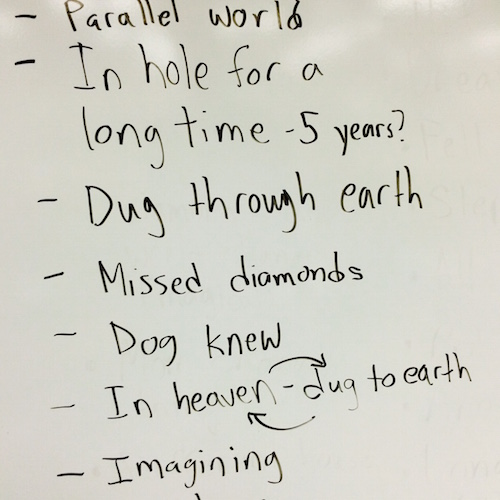 - Parallel world
- In hole for a
long time - 5 years?
- Dug through earth
- Missed diamonds
- Dog knew
- In heaven - dug to earth
- Imagining